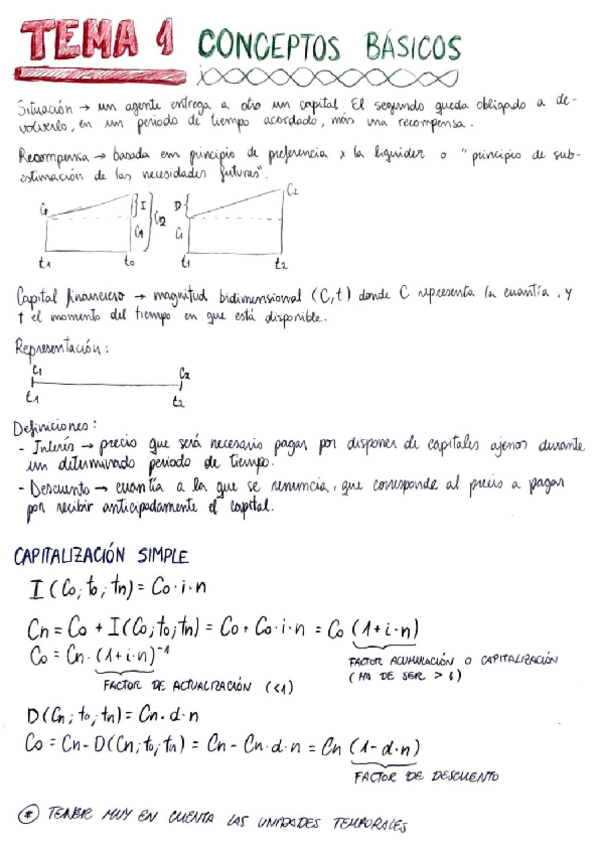 TEMA 1 CONCEPTOS BÁSICOS
Situación → un agente entrega a otro un capital. El segundo queda obligado a de-
volverlo, en un periodo de tiempo acordado, más una recompensa.
Recompensa → basada en principio de preferencia x la liquidez o "principio de sub-
estimación de las necesidades futuras".
C0 } I } C2 D { C2
C1 C1
t1 t0 t1 t2
Capital financiero → magnitud bidimensional (C,t) donde C representa la cuantía, y
t el momento del tiempo en que está disponible.
Representación:
C1 C2
t1 t2
Definiciones:
- Interés → precio que será necesario pagar por disponer de capitales ajenos durante
un determinado periodo de tiempo.
- Descuento → cuantía a la que se renuncia, que corresponde al precio a pagar
por recibir anticipadamente el capital.
CAPITALIZACIÓN SIMPLE
I (C0; t0; tn) = C0·i·n
Cn = C0 + I(C0; t0; tn) = C0 + C0·i·n = C0 (1+i·n)
C0 = Cn·(1+i·n)⁻¹
FACTOR ACUMULACIÓN O CAPITALIZACIÓN
(HA DE SER > 1)
FACTOR DE ACTUALIZACIÓN (<1)
D(Cn; t0; tn) = Cn·d·n
C0 = Cn - D(Cn; t0; tn) = Cn - Cn·d·n = Cn (1-d·n)
FACTOR DE DESCUENTO
* TENER MUY EN CUENTA LAS UNIDADES TEMPORALES